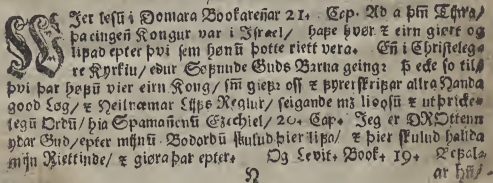 WJer lesũ i Domara Bookareñar 21. Cap. Ad a þm̃ Tijma/
þa eingeñ Kongur var i Jsrael/ hafe hvør ⁊ eirn giørt og
lifad epter þvi sem hønũ þotte riett vera. Eñ i Christeleg-
re Kyrkiu/ edur Søfnude Guds Barna geingr þ ecke so til/
þvi þar høfũ vier eirn Kong/ sm̃ giefr oss ⁊ fyrerskrifar allra Handa
good Løg/ ⁊ Heilnæmar Lijfs Reglur/ seigande m; liosũ ⁊ utþricke-
legũ Ordũ/ hia Spamañenũ Ezechiel/ 20. Cap. Jeg er DROttenn
ydar Gud/ epter mijnũ Bodordũ skulud þier lifa/ ⁊ þier skulud hallda
mijn Riettinde/ ⁊ giøra þar epter. Og Levit. Book. 19.
ar hũ/